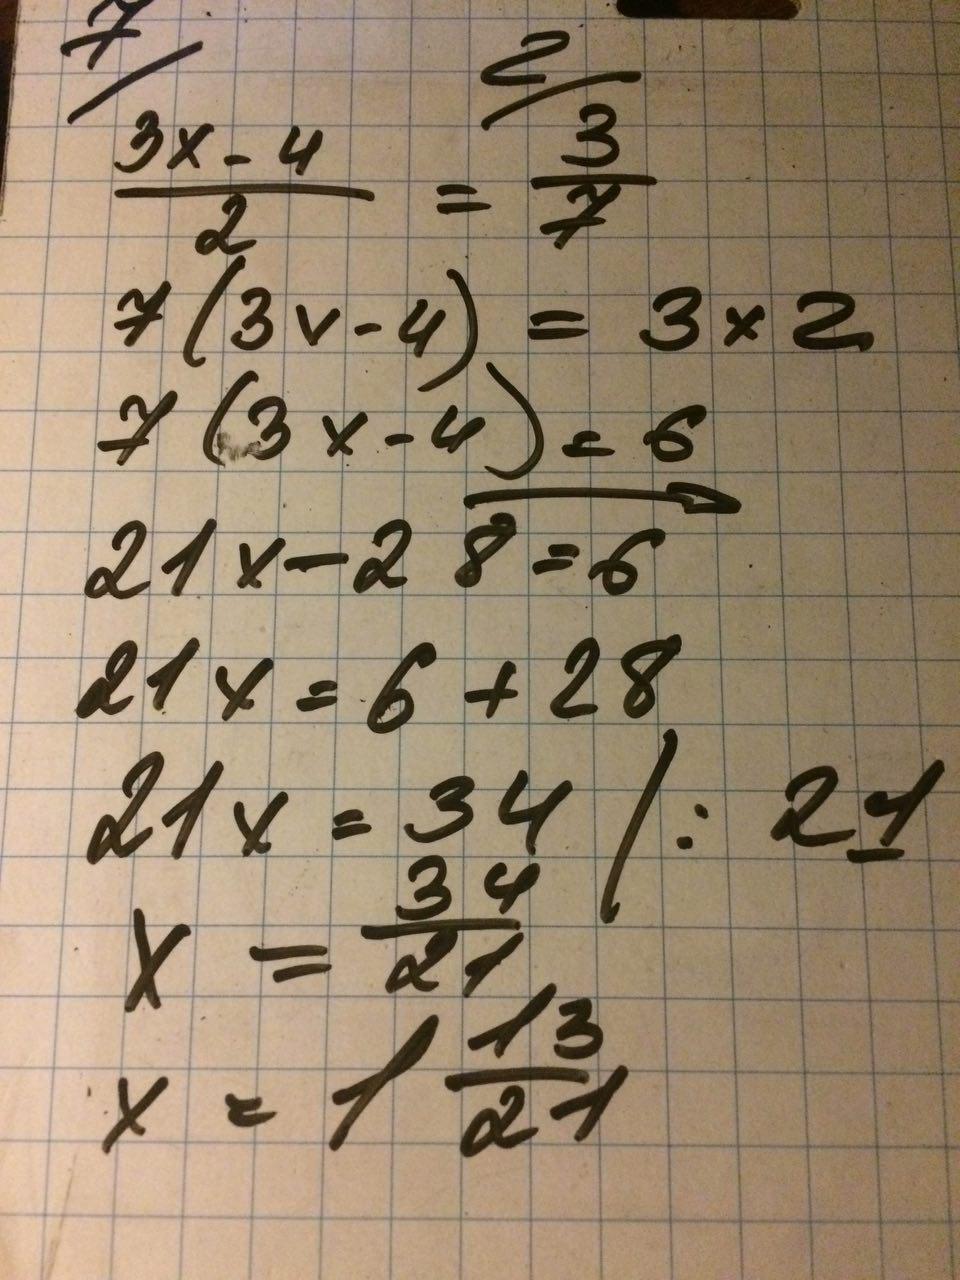 7/ 2/
(3x - 4)/2 = 3/7
7(3x-4) = 3 x 2
7(3x-4) = 6
21x-28 = 6
21x = 6 + 28
21x = 34 / : 21
x = 34/21
x = 1 13/21